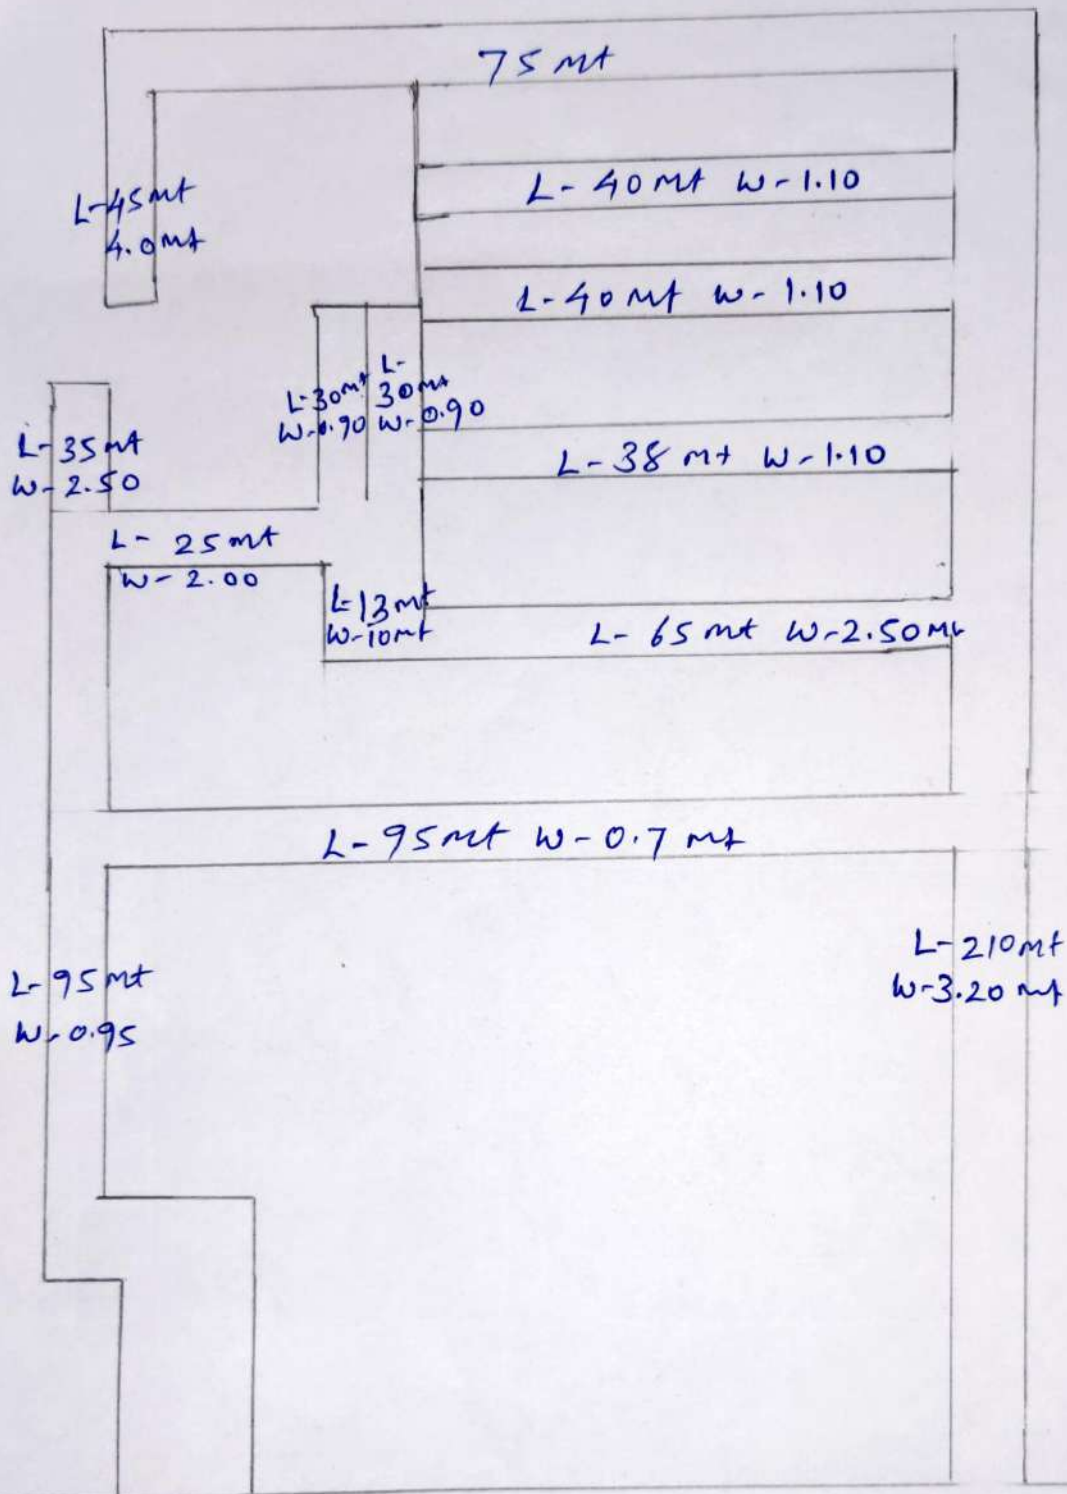 75 mt
L-45mt
4.0mt
L-40mt W-1.10
L-40mt W-1.10
L-30mt
W-0.90
L-
30mt
W-0.90
L-35mt
W-2.50
L-38 mt W-1.10
L- 25mt
W-2.00
L-13mt
W-10mt
L-65 mt W-2.50Mt
L-95mt W-0.7 mt
L-95mt
W-0.95
L-210mt
W-3.20 mt